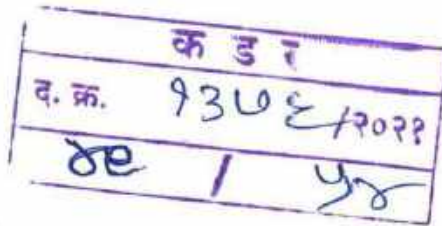 क ड र
द. क्र. १३७६/२०२१
४९ / ५४